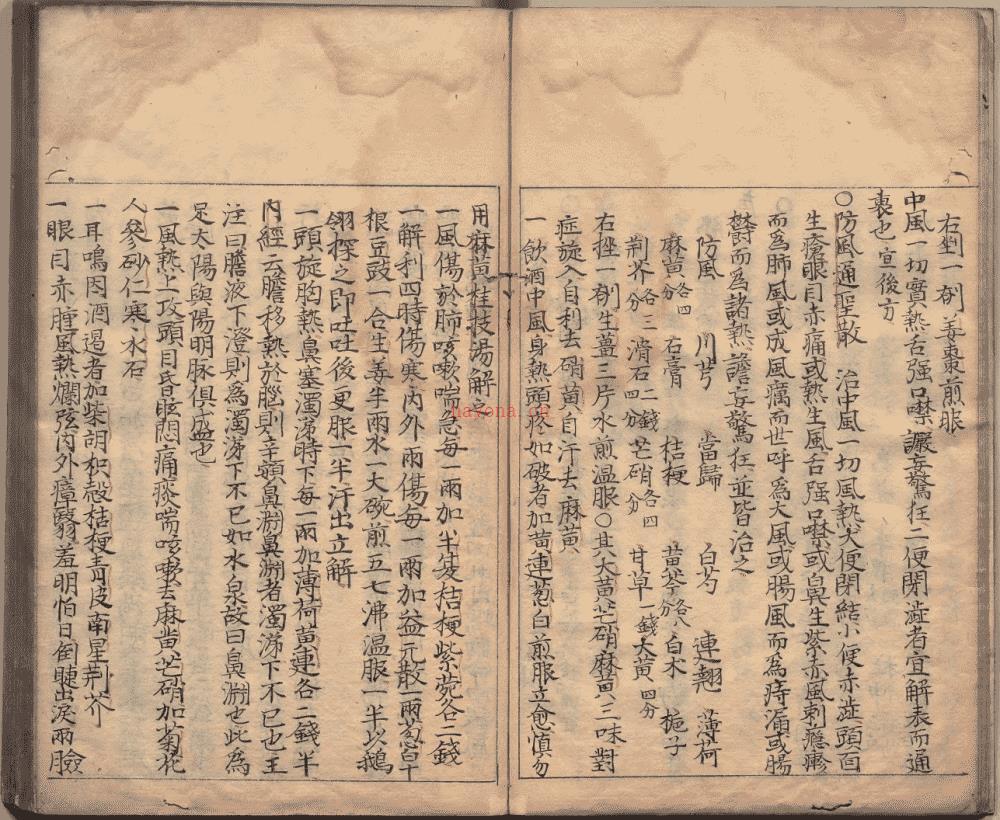 右剉一剤姜棗煎服
中風一切實熱舌强口噤譫妄驚狂二便閉澁者宜解表而通
裏也宣後方
〇防風通聖散 治中風一切風熱大便閉結小便赤澁頭面
生瘡眼目赤痛或熱生風舌强口噤或鼻生紫赤風刺癮疹
而爲肺風或成風癘而世呼爲大風或腸風而為痔漏或腸
欝而爲諸熱譫妄驚狂並皆治之
防風 川芎 當歸 白芍 連翹 薄荷
麻黄各四分 石膏 桔梗 黄芩各八分 白朮 梔子
荆芥各三分 滑石二錢四分 芒硝各四分 甘草一錢 大黄四分
右挫一剤生薑三片水煎温服〇其大黄芒硝麻黄三味對
症旋入自利去硝黄自汗去麻黄
一飲酒中風身熱頭疼如破者加黄連葱白煎服立愈慎勿
用麻黄桂枝湯解之
一風傷於肺咳嗽喘急每一兩加半夏桔梗紫菀各二錢
一解利四時傷寒内外兩傷每一兩加益元散一兩葱白十
根豆豉一合生姜半兩水一大碗煎五七沸温服一半以鵝
翎探之即吐吐後更服一半汗出立解
一頭旋胸熱鼻塞濁涕時下每一兩加薄荷黄連各二錢半
内經云膽移熱於腦則辛頞鼻淵鼻淵者濁涕下不已也王
注曰膽液下澄則為濁涕下不已如水泉故曰鼻淵也此為
足太陽與陽明脉俱盛也
一風熱上攻頭目昏眩悶痛痰喘咳嗽去麻黄芒硝加菊花
人參砂仁寒水石
一耳鳴因酒過者加柴胡枳殼桔梗青皮南星荆芥
一眼目赤腫風熱爛弦内外瘴翳羞明怕日倒睫出淚兩臉
nayona.cn